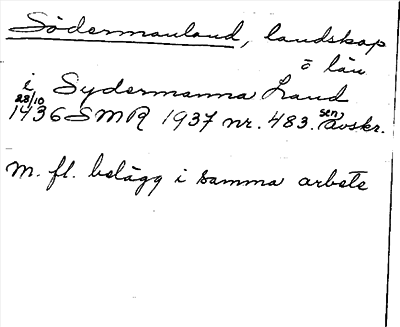 Södermanland, landskap
o län
i Sydermanna Land
28/10 1436 SMR 1937 nr. 483. sen avskr.
M. fl. belägg i samma arbete